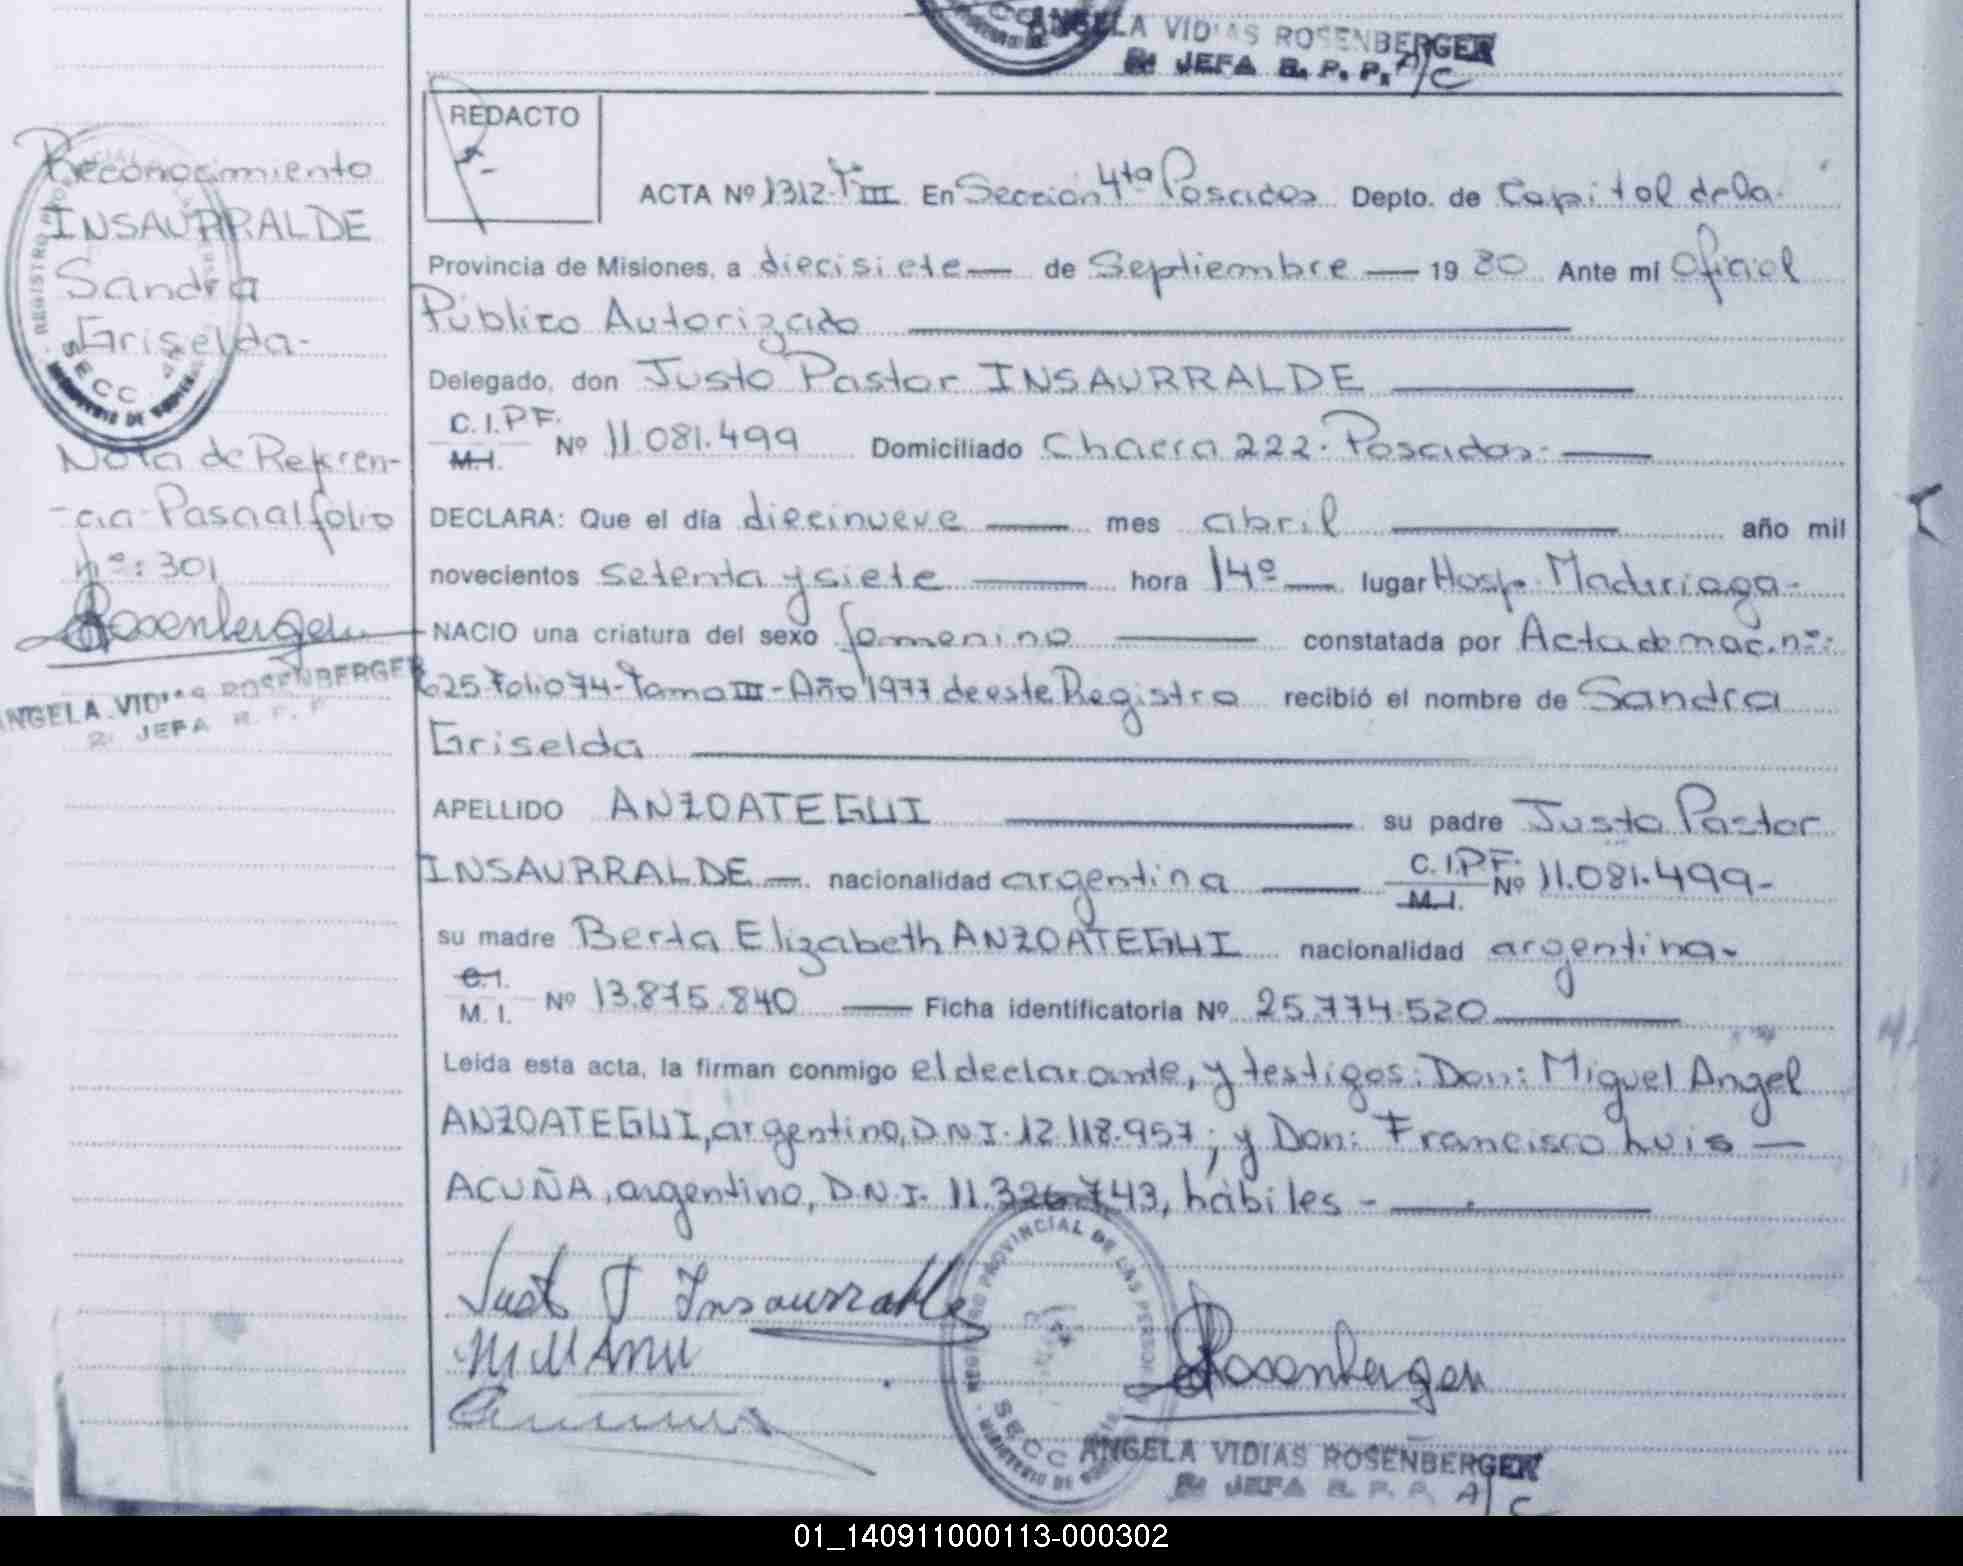 ANGELA VIDIAS ROSENBERGER
JEFA R. P. P. A/C
REDACTO
ACTA Nº 1312-Tº III En Sección 4ta Posadas Depto. de Capital de la
Provincia de Misiones, a diecisiete de Septiembre 1980 Ante mi Oficial
Público Autorizado
Delegado, don Justo Pastor INSAURRALDE
C.I.P.F.
M.I. Nº 11.081.499 Domiciliado Chacra 222-Posadas-
DECLARA: Que el día diecinueve mes abril año mil
novecientos setenta y siete hora 14º lugar Hosp. Madariaga-
NACIO una criatura del sexo femenino constatada por Acta de nac. nº:
625-Folio 74-Tomo III-Año 1977 de este Registro recibió el nombre de Sandra
Griselda
APELLIDO ANZOATEGUI su padre Justo Pastor
INSAURRALDE nacionalidad argentina C.I.P.F. M.I. Nº 11.081.499-
su madre Berta Elizabeth ANZOATEGUI nacionalidad argentina-
C.I.
M.I. Nº 13.875.840 Ficha identificatoria Nº 25.774.520
Leída esta acta, la firman conmigo el declarante, y testigos: Don: Miguel Angel
ANZOATEGUI, argentino, D.N.I. 12.118.957; y Don: Francisco Luis
ACUÑA, argentino, D.N.I. 11.326.743, hábiles-
Just P Insaurralde
REGISTRO PROVINCIAL DE LAS PERSONAS
SECC
MINISTERIO DE
Rosenberger
ANGELA VIDIAS ROSENBERGER
JEFA R. P. P. A/C
Reconocimiento
INSAURRALDE
Sandra
Griselda-
REGISTRO
SECC
MINISTERIO DE
Nota de Referen-
-cia-Pasa al folio
nº: 301
Rosenberger
ANGELA VIDIAS ROSENBERGER
JEFA R. P. P.
01_140911000113-000302